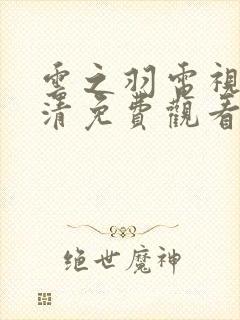 雲之羽電視
清免費觀看
绝世魔神